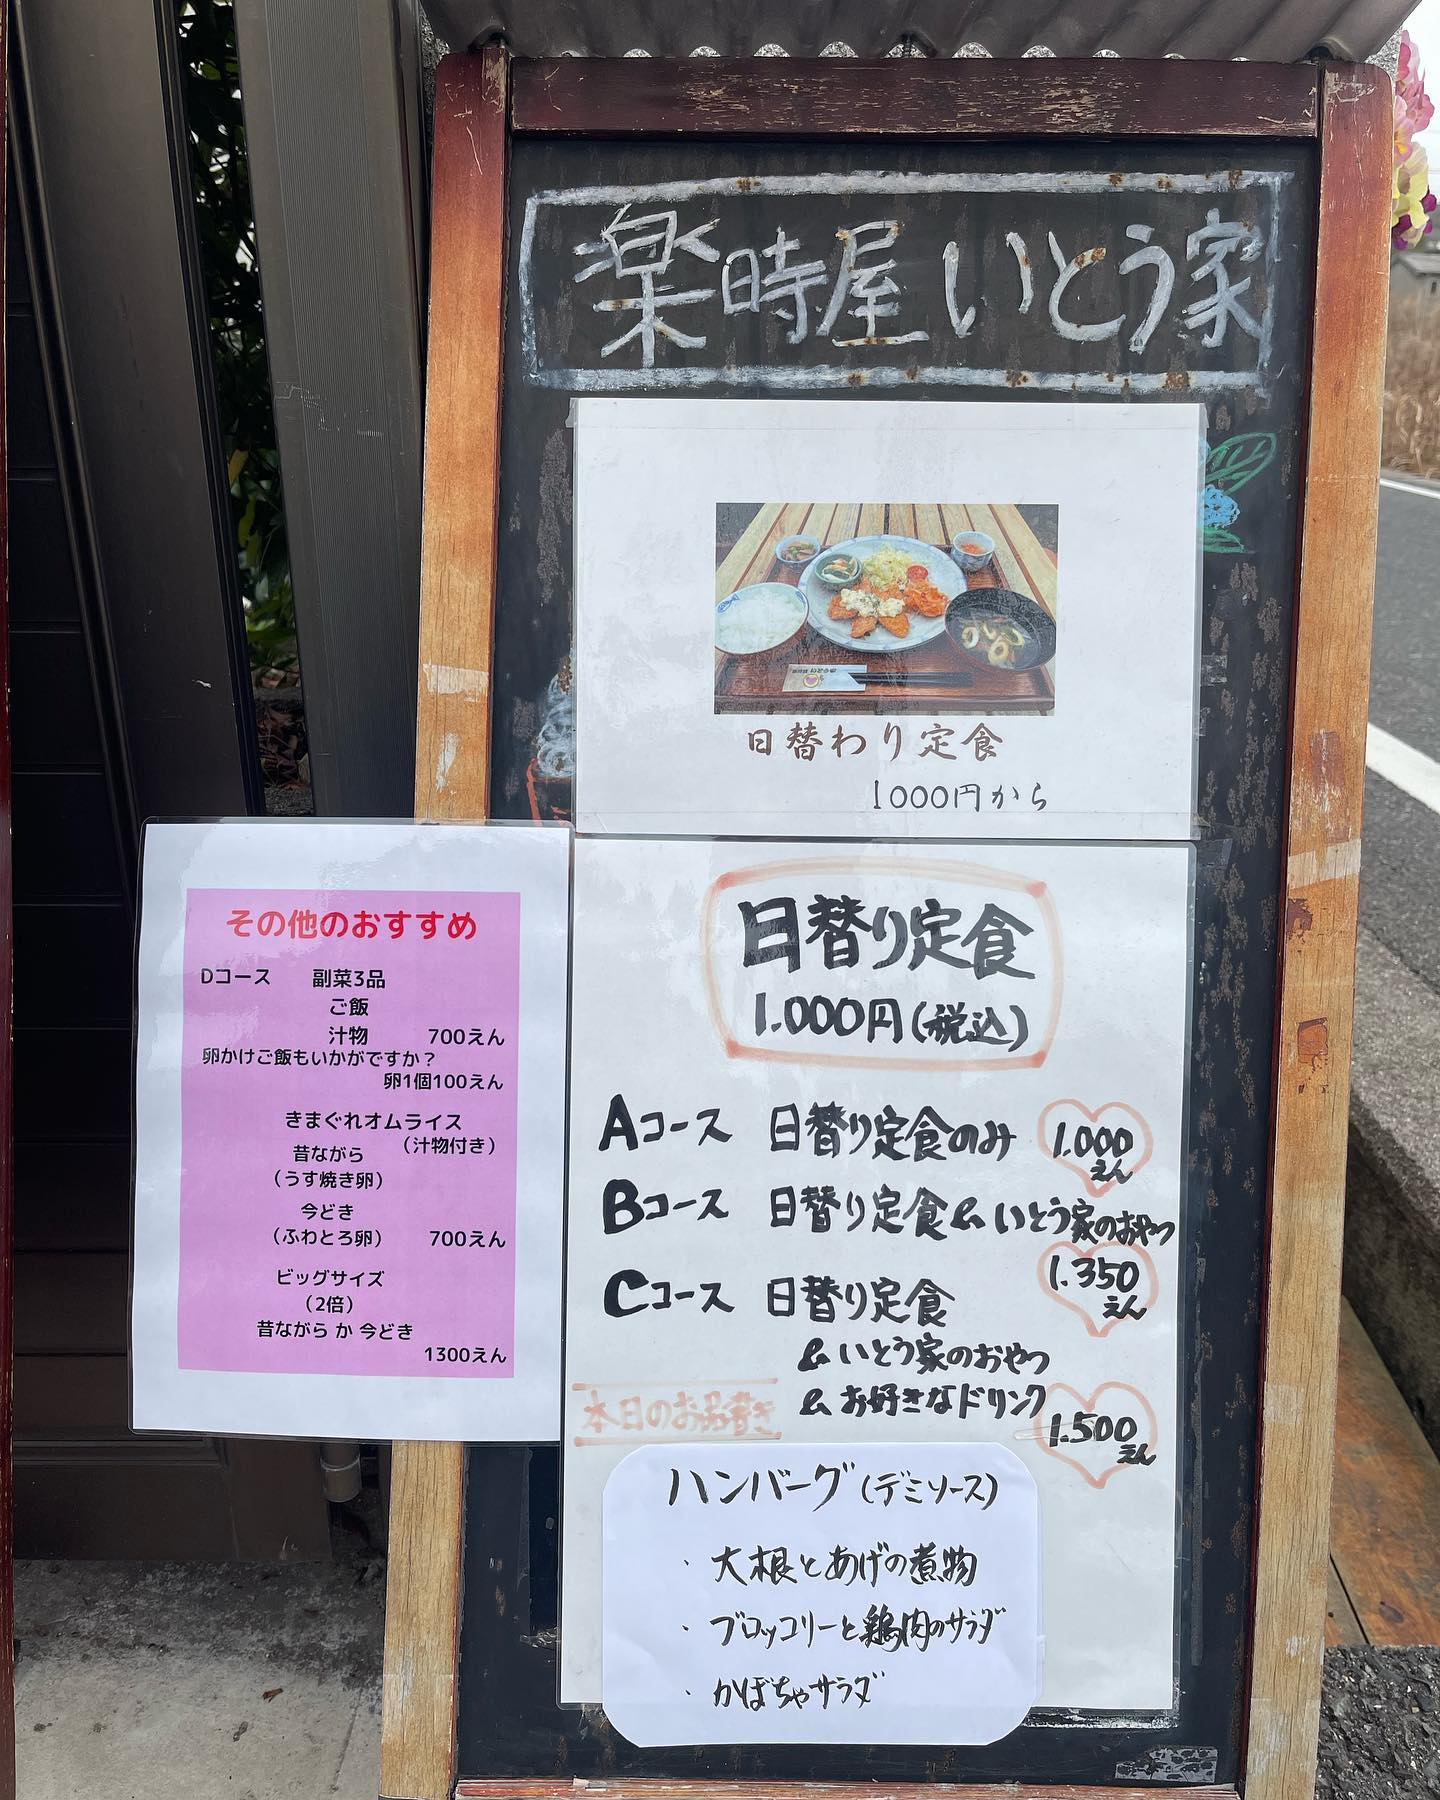 楽時屋 いとう家
日替わり定食
1000円から
その他のおすすめ
Dコース 副菜3品
ご飯
汁物 700えん
卵かけご飯もいかがですか？
卵1個100えん
きまぐれオムライス
（汁物付き）
昔ながら
（うす焼き卵）
今どき
（ふわとろ卵） 700えん
ビッグサイズ
（2倍）
昔ながら か 今どき
1300えん
日替り定食
1.000円(税込)
Aコース 日替り定食のみ 1.000えん
Bコース 日替り定食 & いとう家のおやつ
1.350えん
Cコース 日替り定食
& いとう家のおやつ
& お好きなドリンク
1.500えん
本日のお品書き
ハンバーグ(デミソース)
・大根とあげの煮物
・ブロッコリーと鶏肉のサラダ
・かぼちゃサラダ